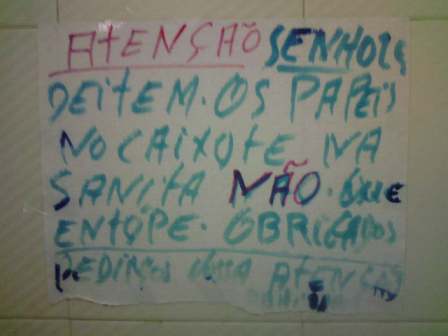 ATENÇÃO SENHORES
DEITEM. OS PAPEIS
NO CAIXOTE NA
SANITA NÃO. QUE
ENTOPE. OBRIGADOS
PEDIMOS UMA ATENÇÃO